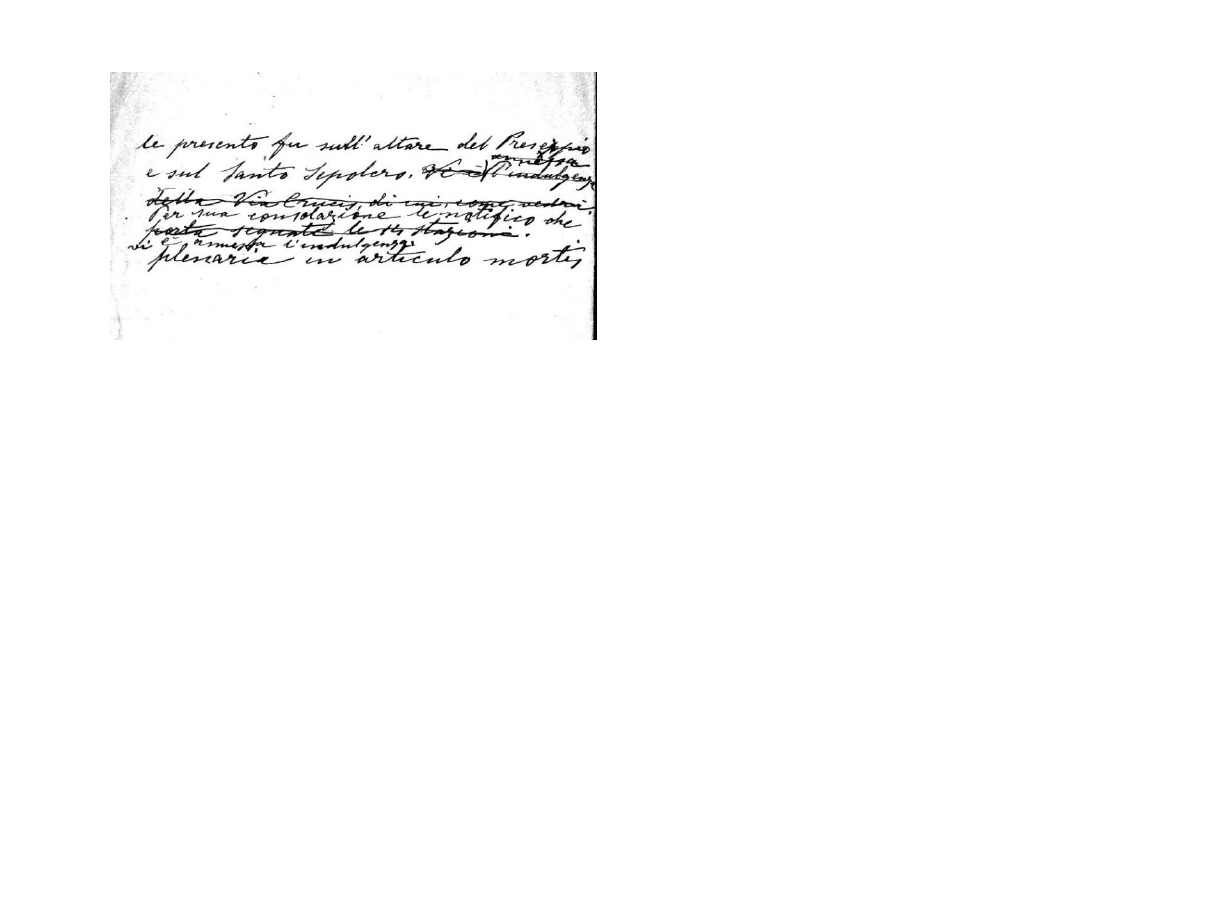 le presento fu sull' altare del Preseppio
annessa
e sul Santo Sepolcro. Vi è l'indulgenza
della Via Crucis, di cui, come vedrà,
Per sua consolazione le notifico che
porta segnate le stazioni.
vi è annessa l'indulgenza
plenaria in articulo mortis